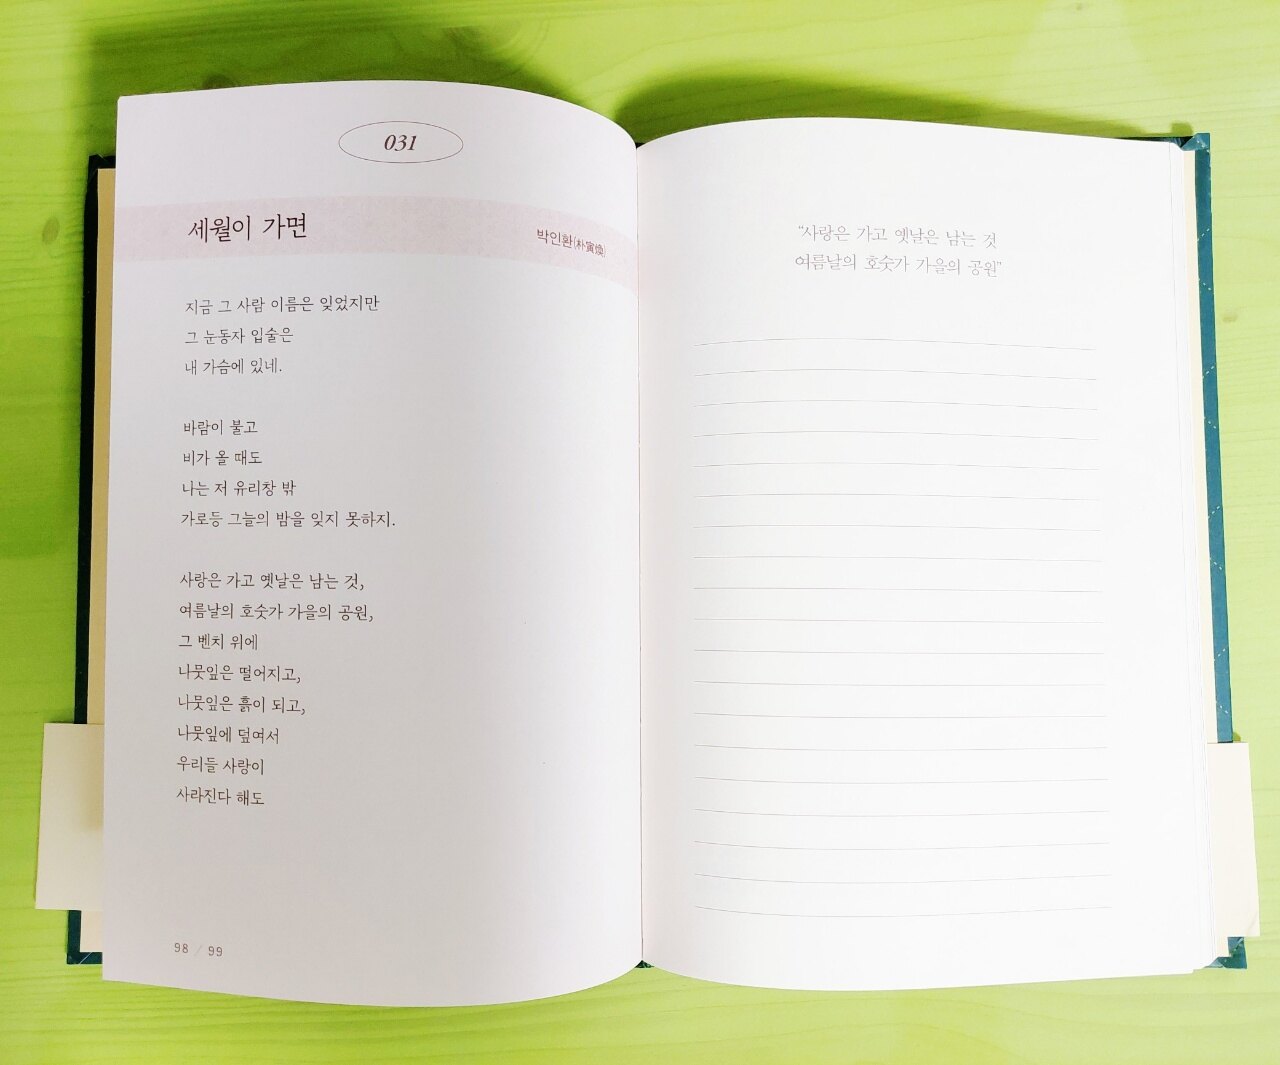 031
세월이 가면
박인환(朴寅煥)
지금 그 사람 이름은 잊었지만
그 눈동자 입술은
내 가슴에 있네.
바람이 불고
비가 올 때도
나는 저 유리창 밖
가로등 그늘의 밤을 잊지 못하지.
사랑은 가고 옛날은 남는 것,
여름날의 호숫가 가을의 공원,
그 벤치 위에
나뭇잎은 떨어지고,
나뭇잎은 흙이 되고,
나뭇잎에 덮여서
우리들 사랑이
사라진다 해도
98 / 99
“사랑은 가고 옛날은 남는 것
여름날의 호숫가 가을의 공원”